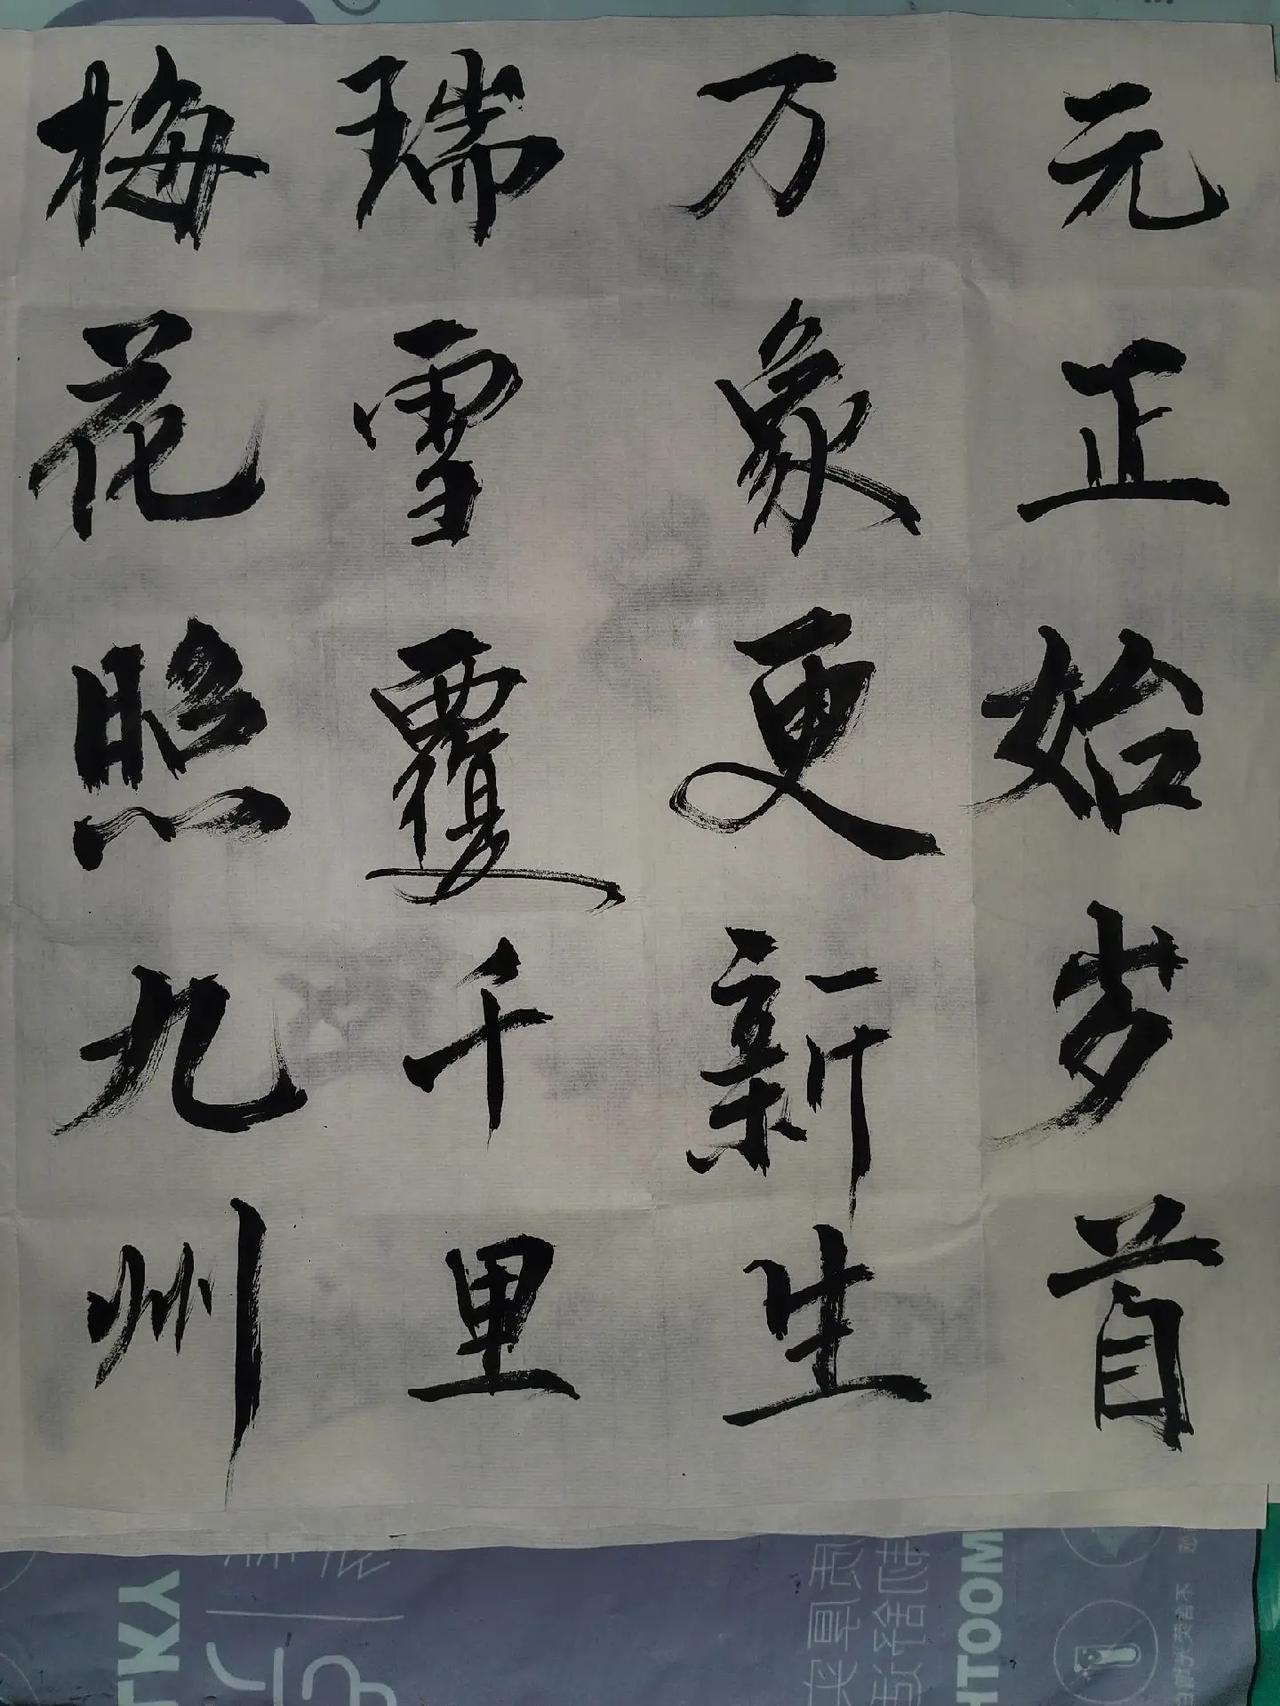 元正始岁首
万象更新生
瑞雪覆千里
梅花照九州
HTOOM